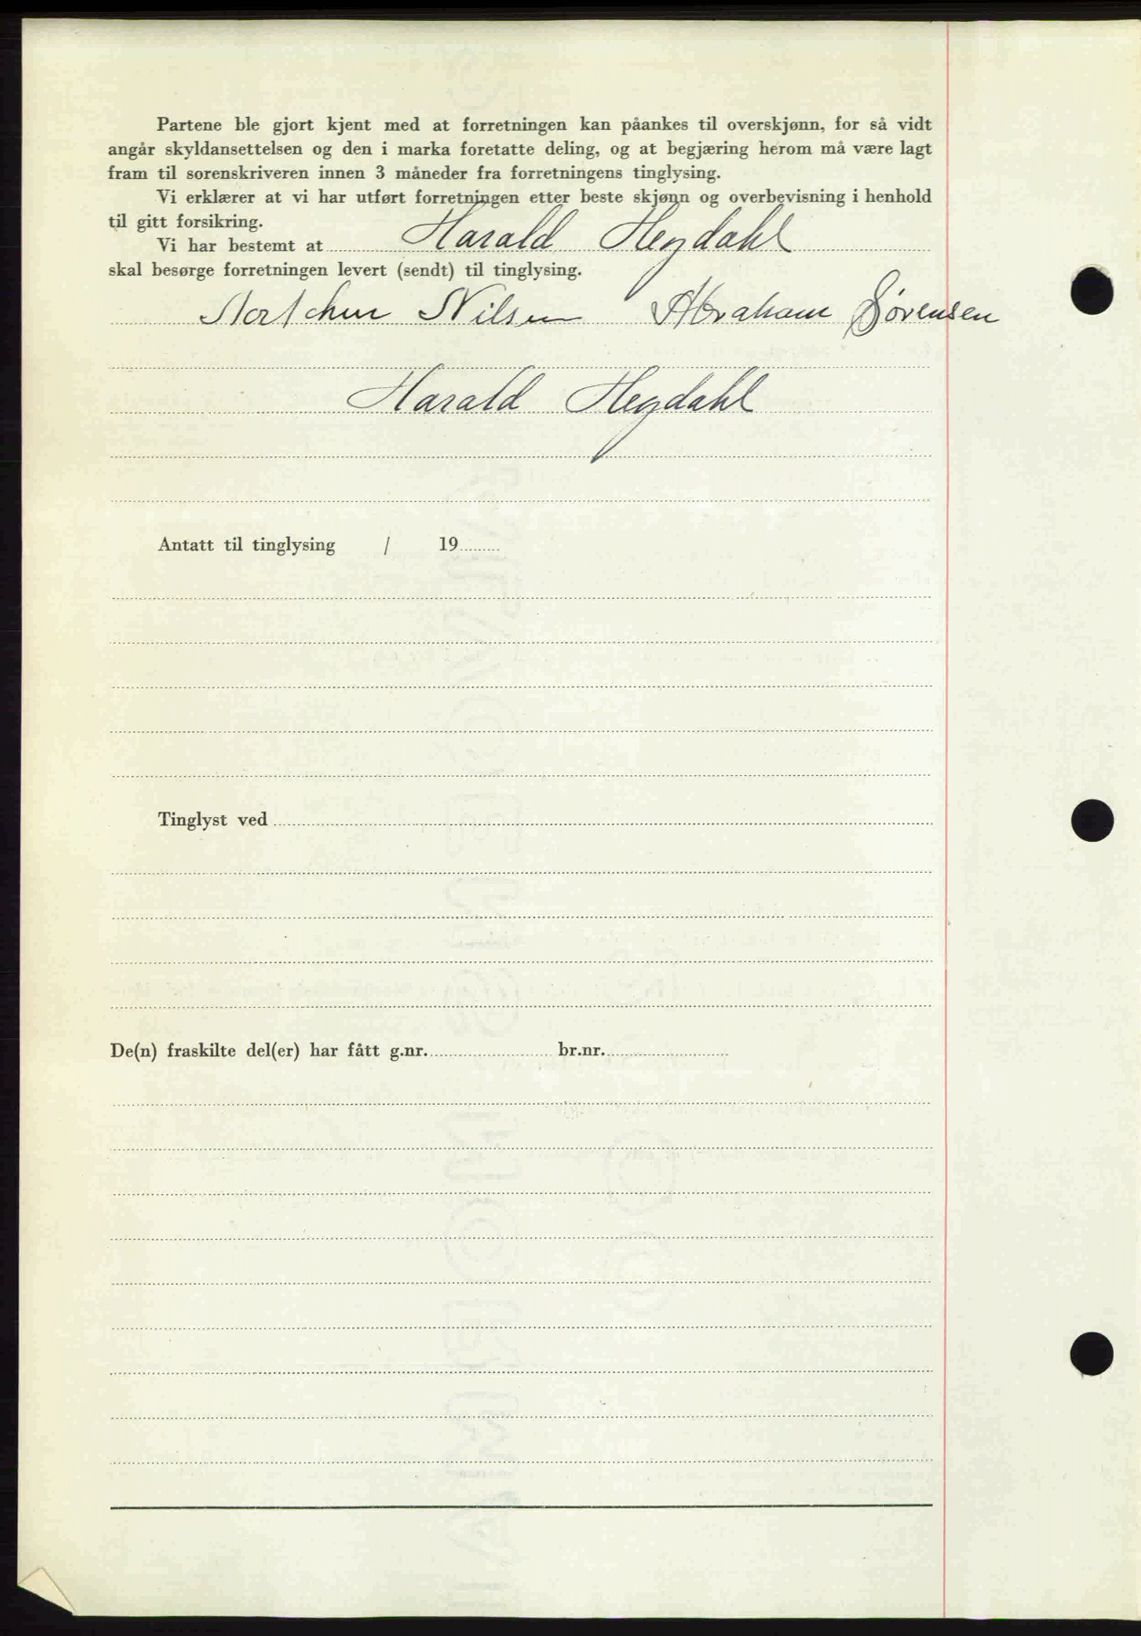 Partene ble gjort kjent med at forretningen kan påankes til overskjønn, for så vidt
angår skyldansettelsen og den i marka foretatte deling, og at begjæring herom må være lagt
fram til sorenskriveren innen 3 måneder fra forretningens tinglysing.
Vi erklærer at vi har utført forretningen etter beste skjønn og overbevisning i henhold
til gitt forsikring.
Vi har bestemt at Harald Hegdahl
skal besørge forretningen levert (sendt) til tinglysing.
Nilsen Abraham Sørensen
Harald Hegdahl
Antatt til tinglysing / 19
Tinglyst ved
De(n) fraskilte del(er) har fått g.nr. br.nr.